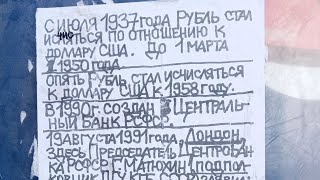 С ИЮЛЯ 1937 ГОДА РУБЛЬ СТАЛ
ИСЧИСЛЯТЬСЯ ПО ОТНОШЕНИЮ К
ДОЛЛАРУ США. ДО 1 МАРТА
1950 ГОДА
ОПЯТЬ РУБЛЬ СТАЛ ИСЧИСЛЯТЬСЯ
К ДОЛЛАРУ США К 1958 ГОДУ.
В 1990 Г. СОЗДАН ЦЕНТРАЛЬ-
НЫЙ БАНК РСФСР.
19 АВГУСТА 1991 ГОДА, ЛОНДОН,
ЗДЕСЬ ПРЕДСЕДАТЕЛЬ ЦЕНТРОБАН-
КА РСФСР Г. МАТЮХИН, ПОДПОЛ-
КОВНИК